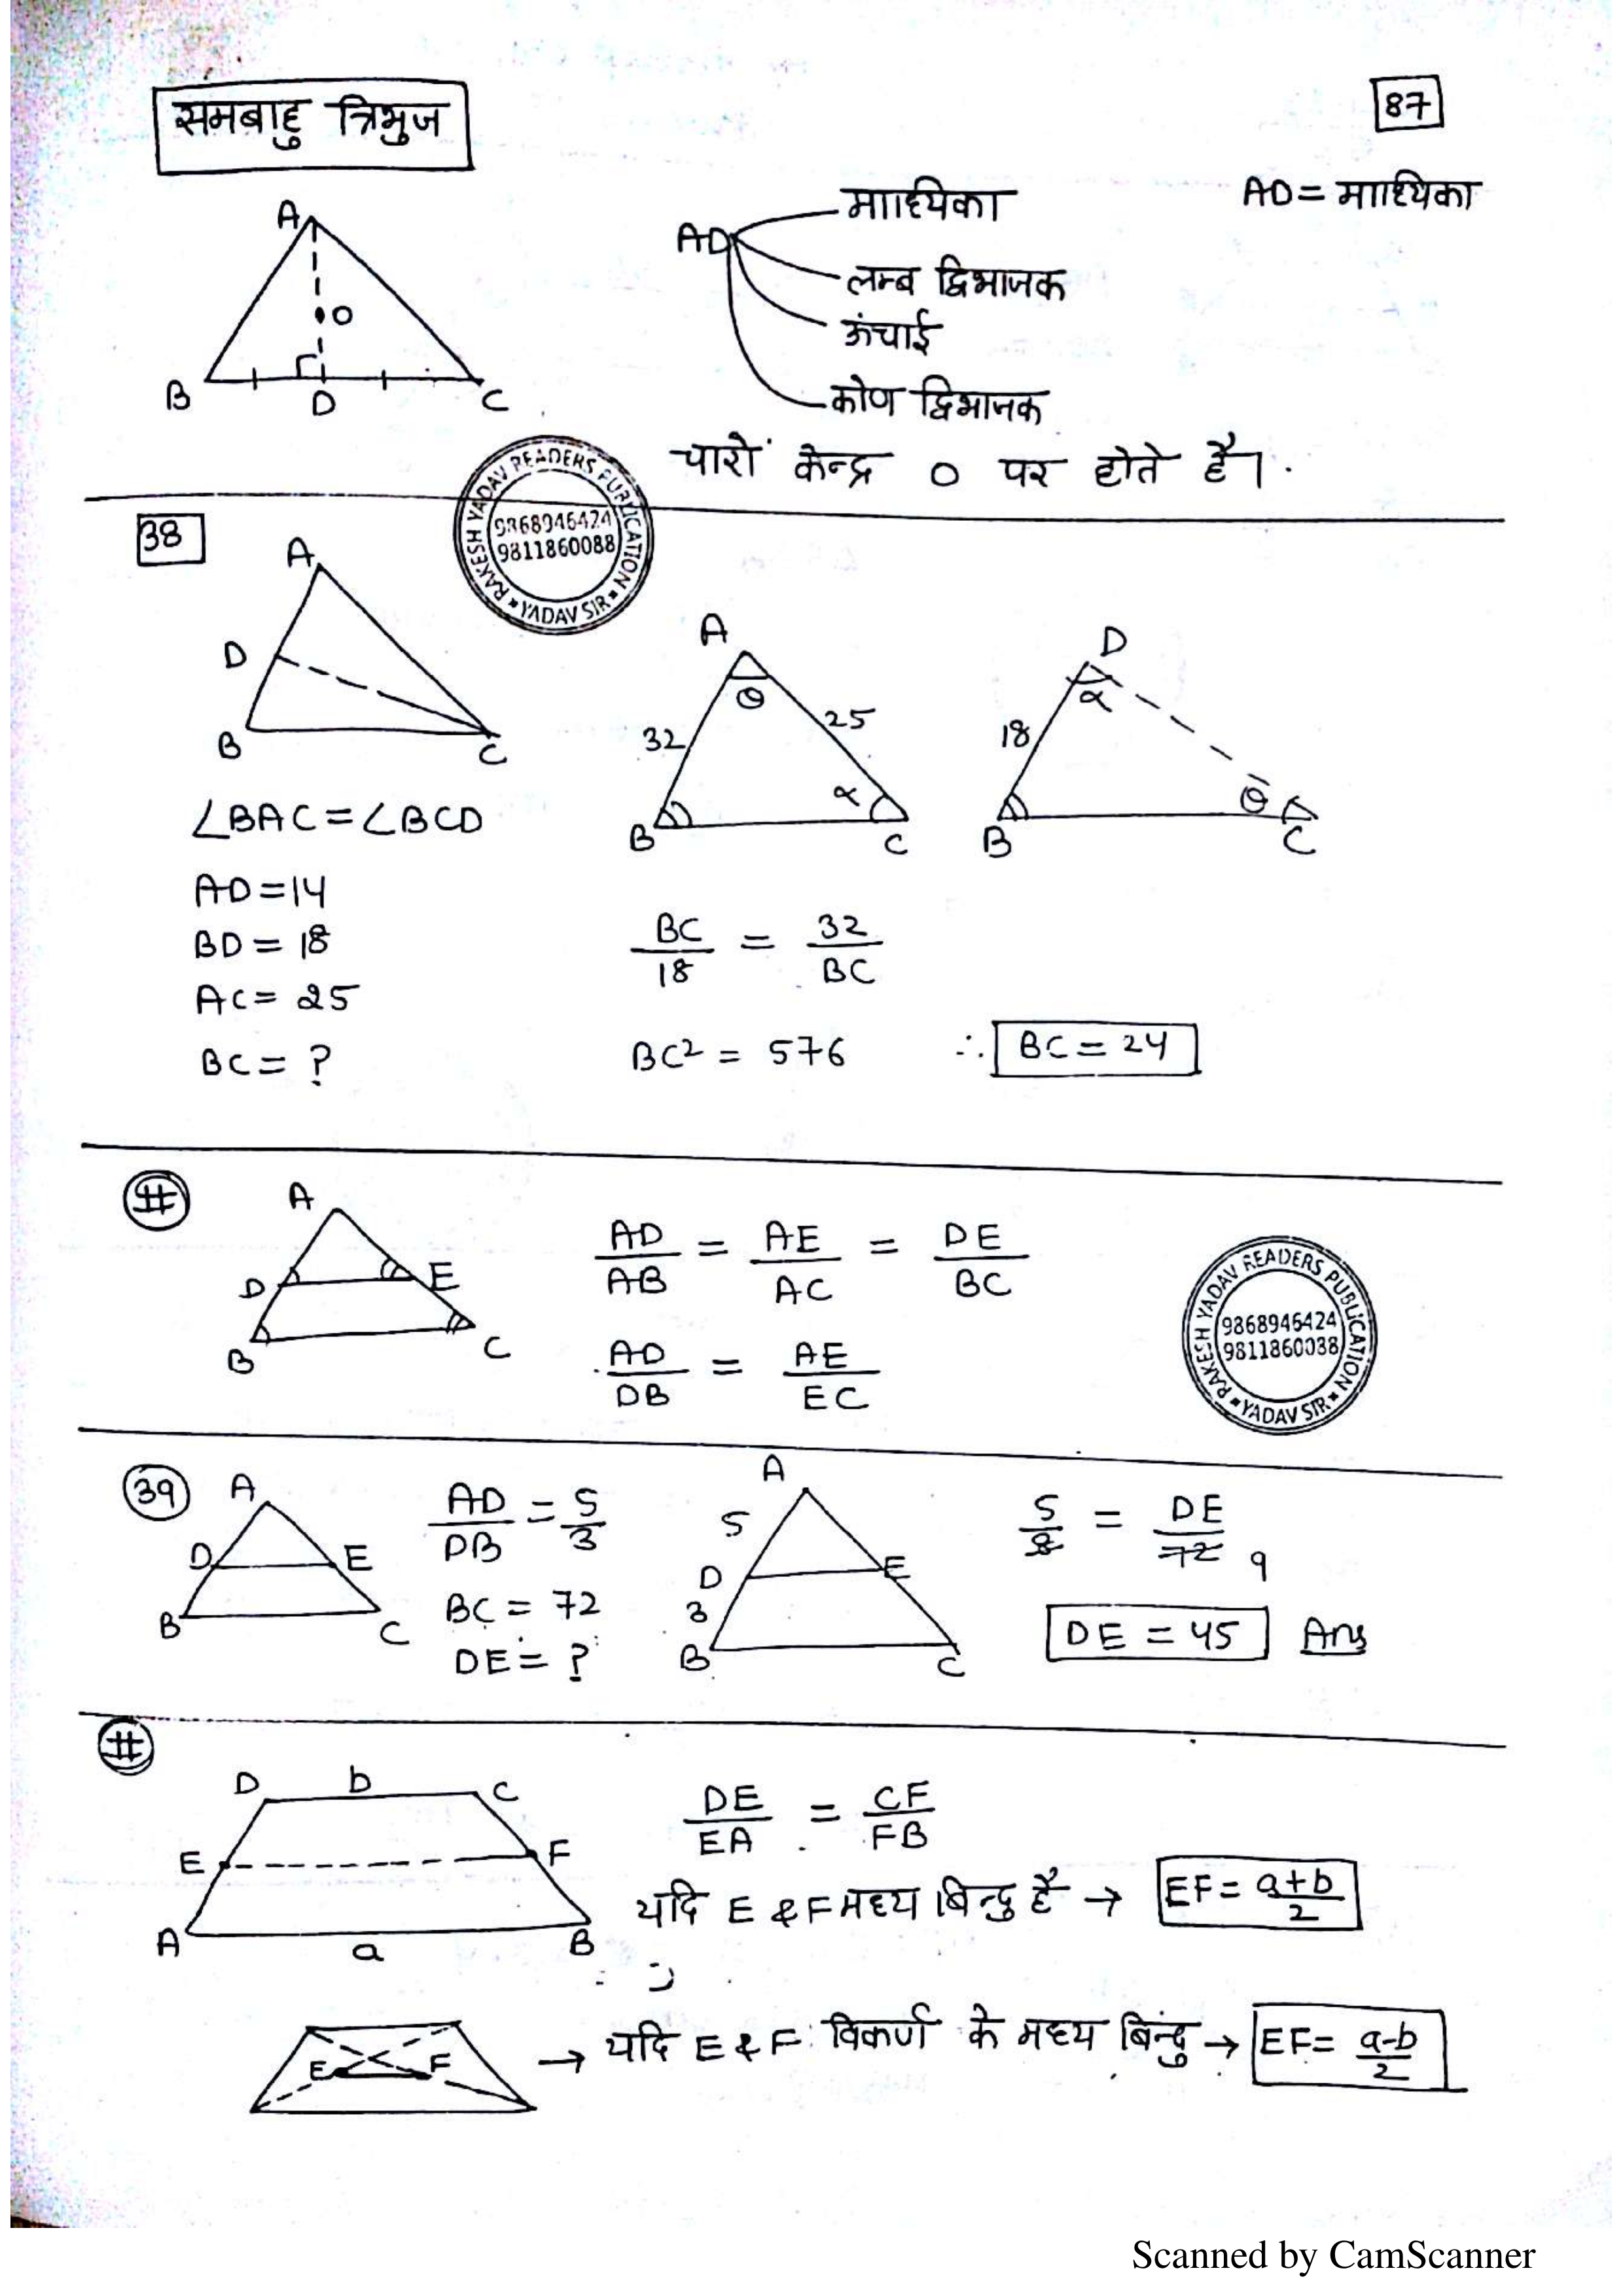 समबाहु त्रिभुज
87
A
O
B D C
AD
माध्यिका
लम्ब द्विभाजक
ऊंचाई
कोण द्विभाजक
AD = माध्यिका
चारों केन्द्र O पर होते है।
RAKESH YADAV READERS PUBLICATION
9868946424
9811860088
YADAV SIR
38
A
D
B C
∠BAC = ∠BCD
AD = 14
BD = 18
AC = 25
BC = ?
A
θ
32 25
α
B C
D
α
18
θ
B C
BC/18 = 32/BC
BC² = 576 ∴ BC = 24
#
A
D E
B C
AD/AB = AE/AC = DE/BC
AD/DB = AE/EC
RAKESH YADAV READERS PUBLICATION
9868946424
9811860088
YADAV SIR
39
A
D E
B C
AD/DB = 5/3
BC = 72
DE = ?
A
5
D E
3
B C
5/8 = DE/72 9
DE = 45 Ans
#
D b C
E F
A a B
DE/EA = CF/FB
यदि E & F मध्य बिन्दु है → EF = a+b/2
E F
→ यदि E & F विकर्ण के मध्य बिन्दु → EF = a-b/2
Scanned by CamScanner